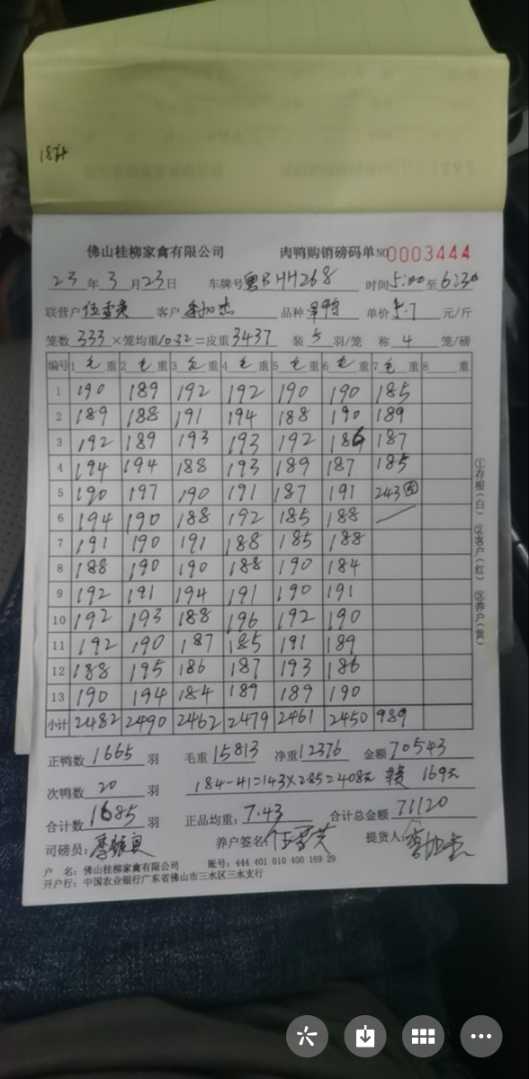 佛山桂柳家禽有限公司 肉鸭购销磅码单 NO 0003444
23 年 3 月 23 日 车牌号 粤BHH268 时间 5:00 至 6:30
联营户 客户 品种 单价 5.7 元/斤
笼数 333 × 笼均重 10.32 = 皮重 3437 装 5 羽/笼 称 4 笼/磅
编号 1 毛 重 2 毛 重 3 毛 重 4 毛 重 5 毛 重 6 毛 重 7 毛 重 8 重
1 190 189 192 192 190 190 185
2 189 188 191 194 188 190 189
3 192 189 193 193 192 186 187
4 194 194 188 193 189 187 185
5 190 197 190 191 187 191 243 ⑤
6 194 190 188 192 185 188
7 191 190 191 188 185 188
8 188 190 190 188 190 184
9 192 191 194 191 190 191
10 192 193 188 196 192 190
11 192 190 187 185 191 189
12 188 195 186 187 193 186
13 190 194 184 189 189 190
小计 2482 2490 2462 2479 2461 2450 989
①存根(白) ②客户(红) ③养户(黄)
正鸭数 1665 羽 毛重 15813 净重 12376 金额 70543
次鸭数 20 羽 184-41=143×2.85=408元 169元
合计数 1685 羽 正品均重: 7.43 合计总金额 71120
司磅员: 养户签名: 提货人:
户 名: 佛山桂柳家禽有限公司 账号: 444 401 010 400 169 29
开户行: 中国农业银行广东省佛山市三水区三水支行